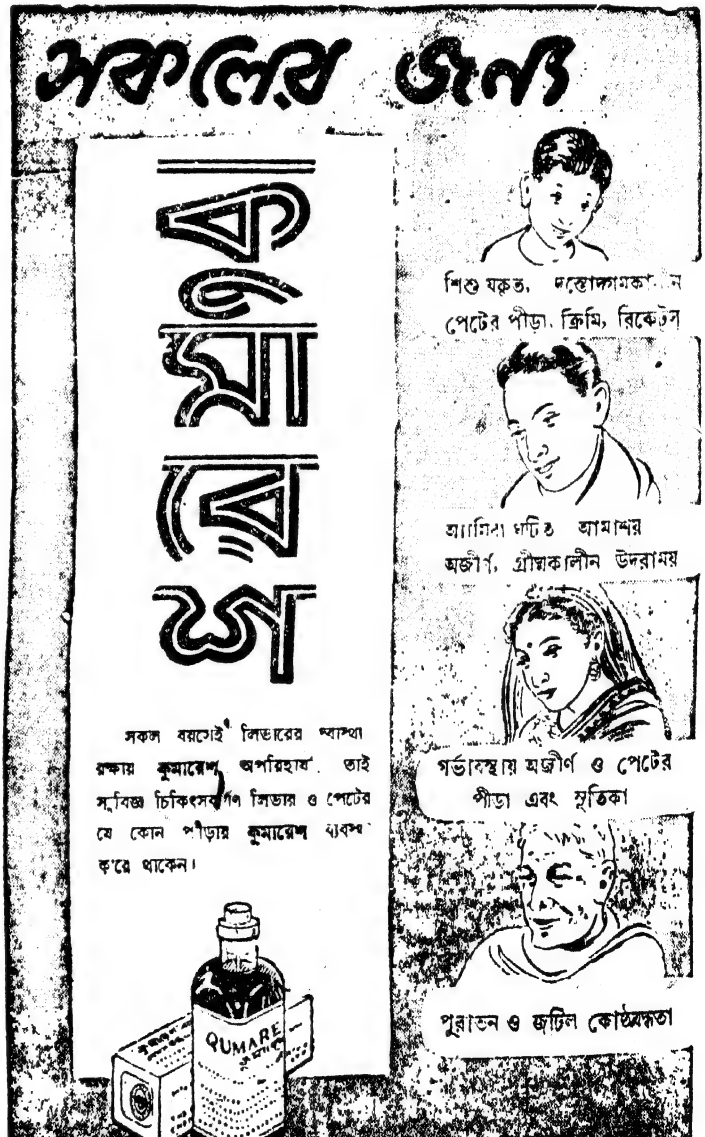 সকলের জন্য
কুমারেশ
সকল বয়সেই লিভারের স্বাস্থ্য
রক্ষায় কুমারেশ অপরিহার্য. তাই
সুবিজ্ঞ চিকিৎসকগণ লিভার ও পেটের
যে কোন পীড়ায় কুমারেশ ব্যবস্থা
ক'রে থাকেন।
QUMARE
শিশু যকৃত, দন্তোদ্গমকালীন
পেটের পীড়া, ক্রিমি, রিকেটস্
ঘটিত আমাশয়
অজীর্ণ, গ্রীষ্মকালীন উদরাময়
গর্ভাবস্থায় অজীর্ণ ও পেটের
পীড়া এবং সুতিকা
পুরাতন ও জটিল কোষ্ঠবদ্ধতা